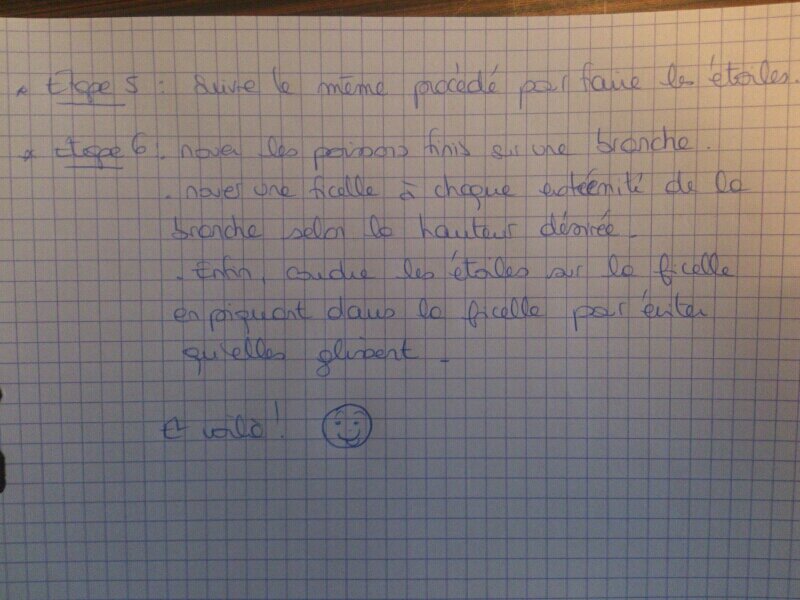 * Etape 5 : suivre le même procédé pour faire les étoiles.
* Etape 6 : nouer les poissons finis sur une branche.
. nouer une ficelle à chaque extrémité de la
branche selon la hauteur désirée.
. Enfin, coudre les étoiles sur la ficelle
en piquant dans la ficelle pour éviter
qu'elles glissent.
Et voilà !